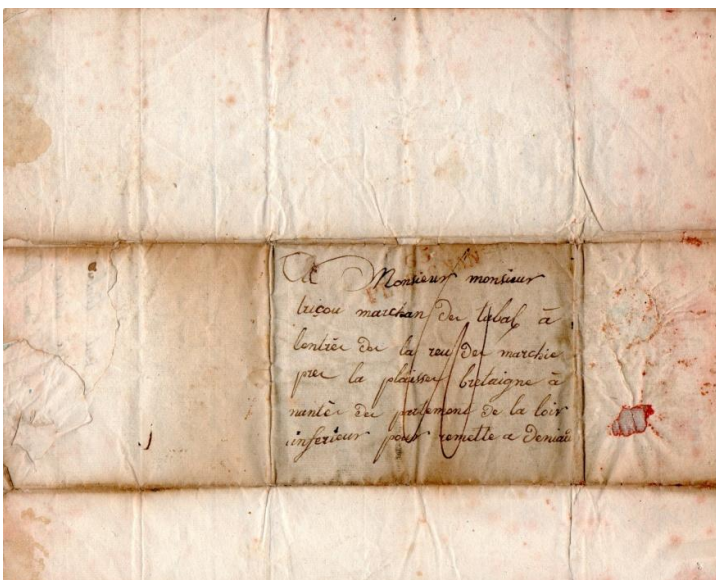 A Monsieur monsieur
triçou marchan de tabaf à
lentrée de la reu de marchie
pree la plaisse bretaigne à
nantes de partemant de la loir
inferieur pour remette a Deniau